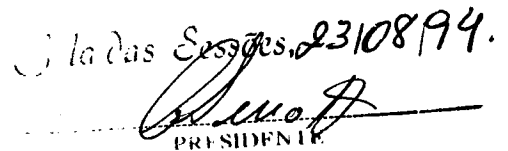 Sala das Sessões, 23/08/94.
PRESIDENTE